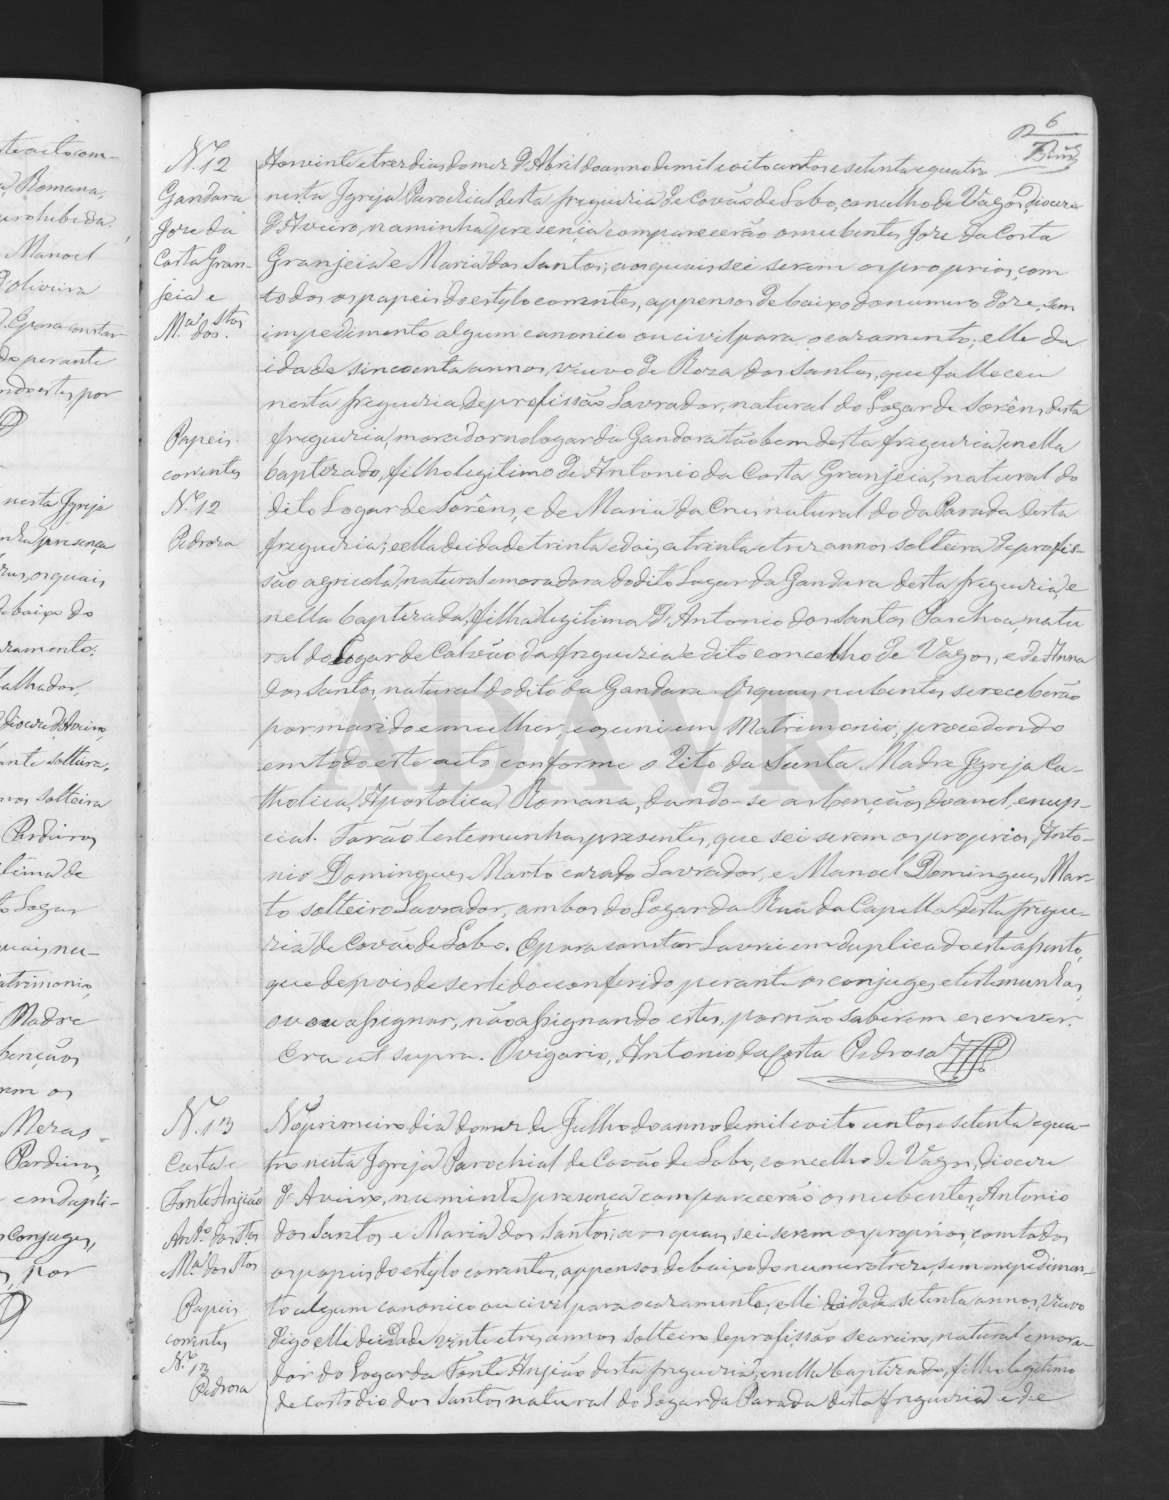 6
N.º 12
Gandara
Jose da
Costa Gran-
jeia e
M.ª dos Stos.
Papeis
correntes
N.º 12
Pedrosa
Aos vinte e tres dias do mez d'Abril do anno de mil e oito centos e setenta e quatro
nesta Igreja Parochial desta freguezia de Covão de Lobo, concelho de Vagos, diocese
d'Aveiro, na minha presença comparecerão os nubentes Jose da Costa
Granjeia e Maria dos Santos; aos quais sei serem os proprios, com
todos os papeis do estylo correntes, appensos debaixo do numero doze, sem
impedimento algum canonico ou civil para o casamento; elle de
idade sincoenta annos, viuvo de Roza dos Santos, que falleceu
nesta freguezia, de profissão Lavrador, natural do Logar de Sorêns, desta
freguezia, morador no logar da Gandara tãobem desta freguezia, e nella
baptizado, filho legitimo de Antonio da Costa Granjeia, natural do
dito Logar de Sorêns, e de Maria da Crus natural do da Parada desta
freguezia; e ella de idade trinta e dois a trinta e trez annos solteira de profis-
são agricola, natural e moradora do dito Lugar da Gandara desta freguezia, e
nella baptizada, filha legitima d'Antonio dos Santos Paschoa, natu
ral do Logar de Calvão da freguezia e dito concelho de Vagos, e de Anna
dos Santos, natural do dito da Gandara. Os quais nubentes se receberão
por marido e mulher, e os uni em Matrimonio, procedendo
em todo este acto conforme o Rito da Santa Madre Igreja Ca-
tholica, Apostolica, Romana, dando-se as bençãos do anel, e nup-
cial. Forão testemunhas presentes, que sei serem os proprios, Anto-
nio Domingues Marto cazado Lavrador, e Manoel Domingues Mar-
to solteiro Lavrador, ambos do Logar da Rua da Capella desta fregue-
zia de Covão de Lobo. E para constar Lavrei em duplicado este assento,
que depois de ser lido e conferido perante os conjuges e testemunhas,
eu assignar, não assignando estes, por não saberem escrever.
Era ut supra. O vigario, Antonio da Costa Pedrosa
N.º 13
Costa e
Fonte Anjião
Antº. dos Stos
M.ª dos Stos
Papeis
correntes
N.º 13
Pedrosa
No primeiro dia do mez de Julho do anno de mil e oito centos e setenta e qua-
tro nesta Igreja Parochial de Covão de Lobo, concelho de Vagos, diocese
d'Aveiro, na minha presença comparecerão os nubentes, Antonio
dos Santos e Maria dos Santos; aos quais sei serem os proprios, com todos
os papeis do estylo correntes, appensos debaixo do numero treze, sem impedimen-
to algum canonico ou civil para o casamento; elle de idade setenta annos, viuvo
digo elle de idade vinte e tres annos solteiro de profissão seareiro, natural e mora-
dor do Logar da Fonte Anjião desta freguezia, e nella baptizado, filho legitimo
de Costodio dos Santos natural do Logar da Parada desta freguezia e de
ADAVR